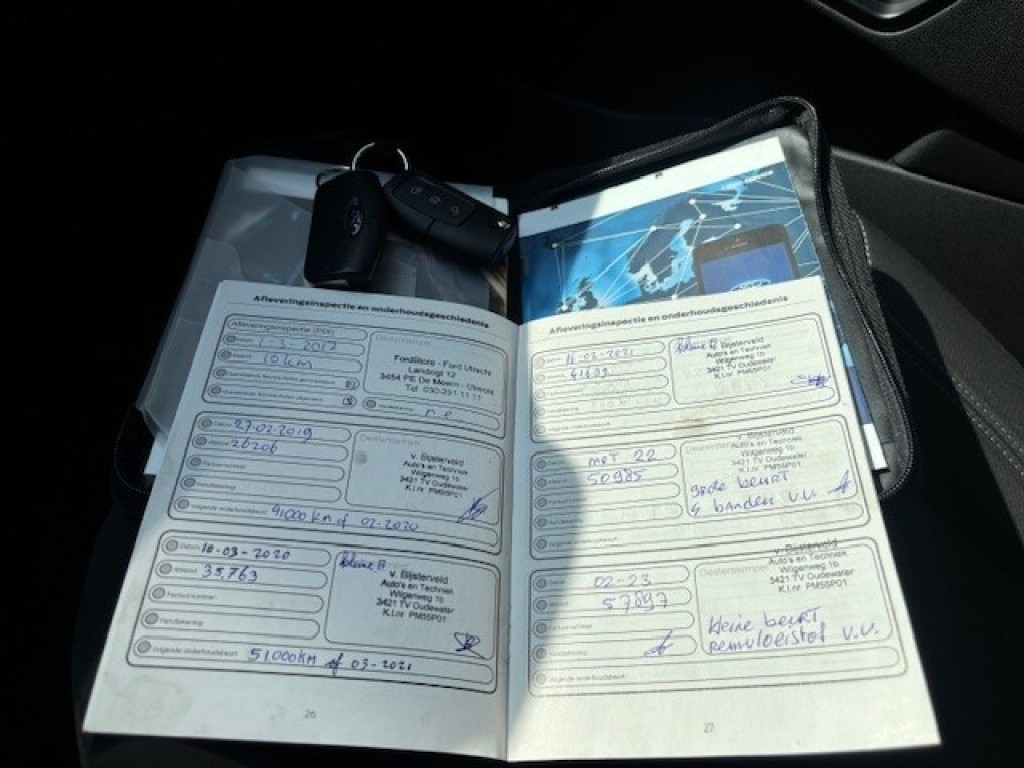 Afleveringsinspectie en onderhoudsgeschiedenis
Afleveringsinspectie (PDI)
1-3-2017
10 km
FordStore - Ford Utrecht
Landzigt 12
3454 PE De Meern - Utrecht
Tel 030-291 11 11
n.e
Datum 27-02-2019
Afstand 26206
Factuurnummer
Handtekening
Volgende onderhoudsbeurt 41000 km of 02-2020
v. Bijsterveld
Auto's en Techniek
Wilgenweg 1b
3421 TV Oudewater
K.I.nr PM55P01
Datum 18-03-2020
Afstand 35.763
Factuurnummer
Handtekening
Volgende onderhoudsbeurt 51.000KM of 03-2021
kleine B
v. Bijsterveld
Auto's en Techniek
Wilgenweg 1b
3421 TV Oudewater
K.I.nr PM55P01
26
Afleveringsinspectie en onderhoudsgeschiedenis
16-03-2021
kleine B
v. Bijsterveld
Auto's en Techniek
Wilgenweg 1b
3421 TV Oudewater
K.I.nr PM55P01
Volgende onderhoudsbeurt
Datum MRT 22
Afstand 50985
Factuurnummer
Handtekening
Volgende onderhoudsbeurt
Dealerstempel
v. Bijsterveld
Auto's en Techniek
Wilgenweg 1b
3421 TV Oudewater
K.I.nr PM55P01
grote beurt
4 banden v.v.
Datum 02-23
Afstand 57897
Factuurnummer
Handtekening
Volgende onderhoudsbeurt
Dealerstempel
v. Bijsterveld
Auto's en Techniek
Wilgenweg 1b
3421 TV Oudewater
K.I.nr PM55P01
kleine beurt
remvloeistof v.v.
27